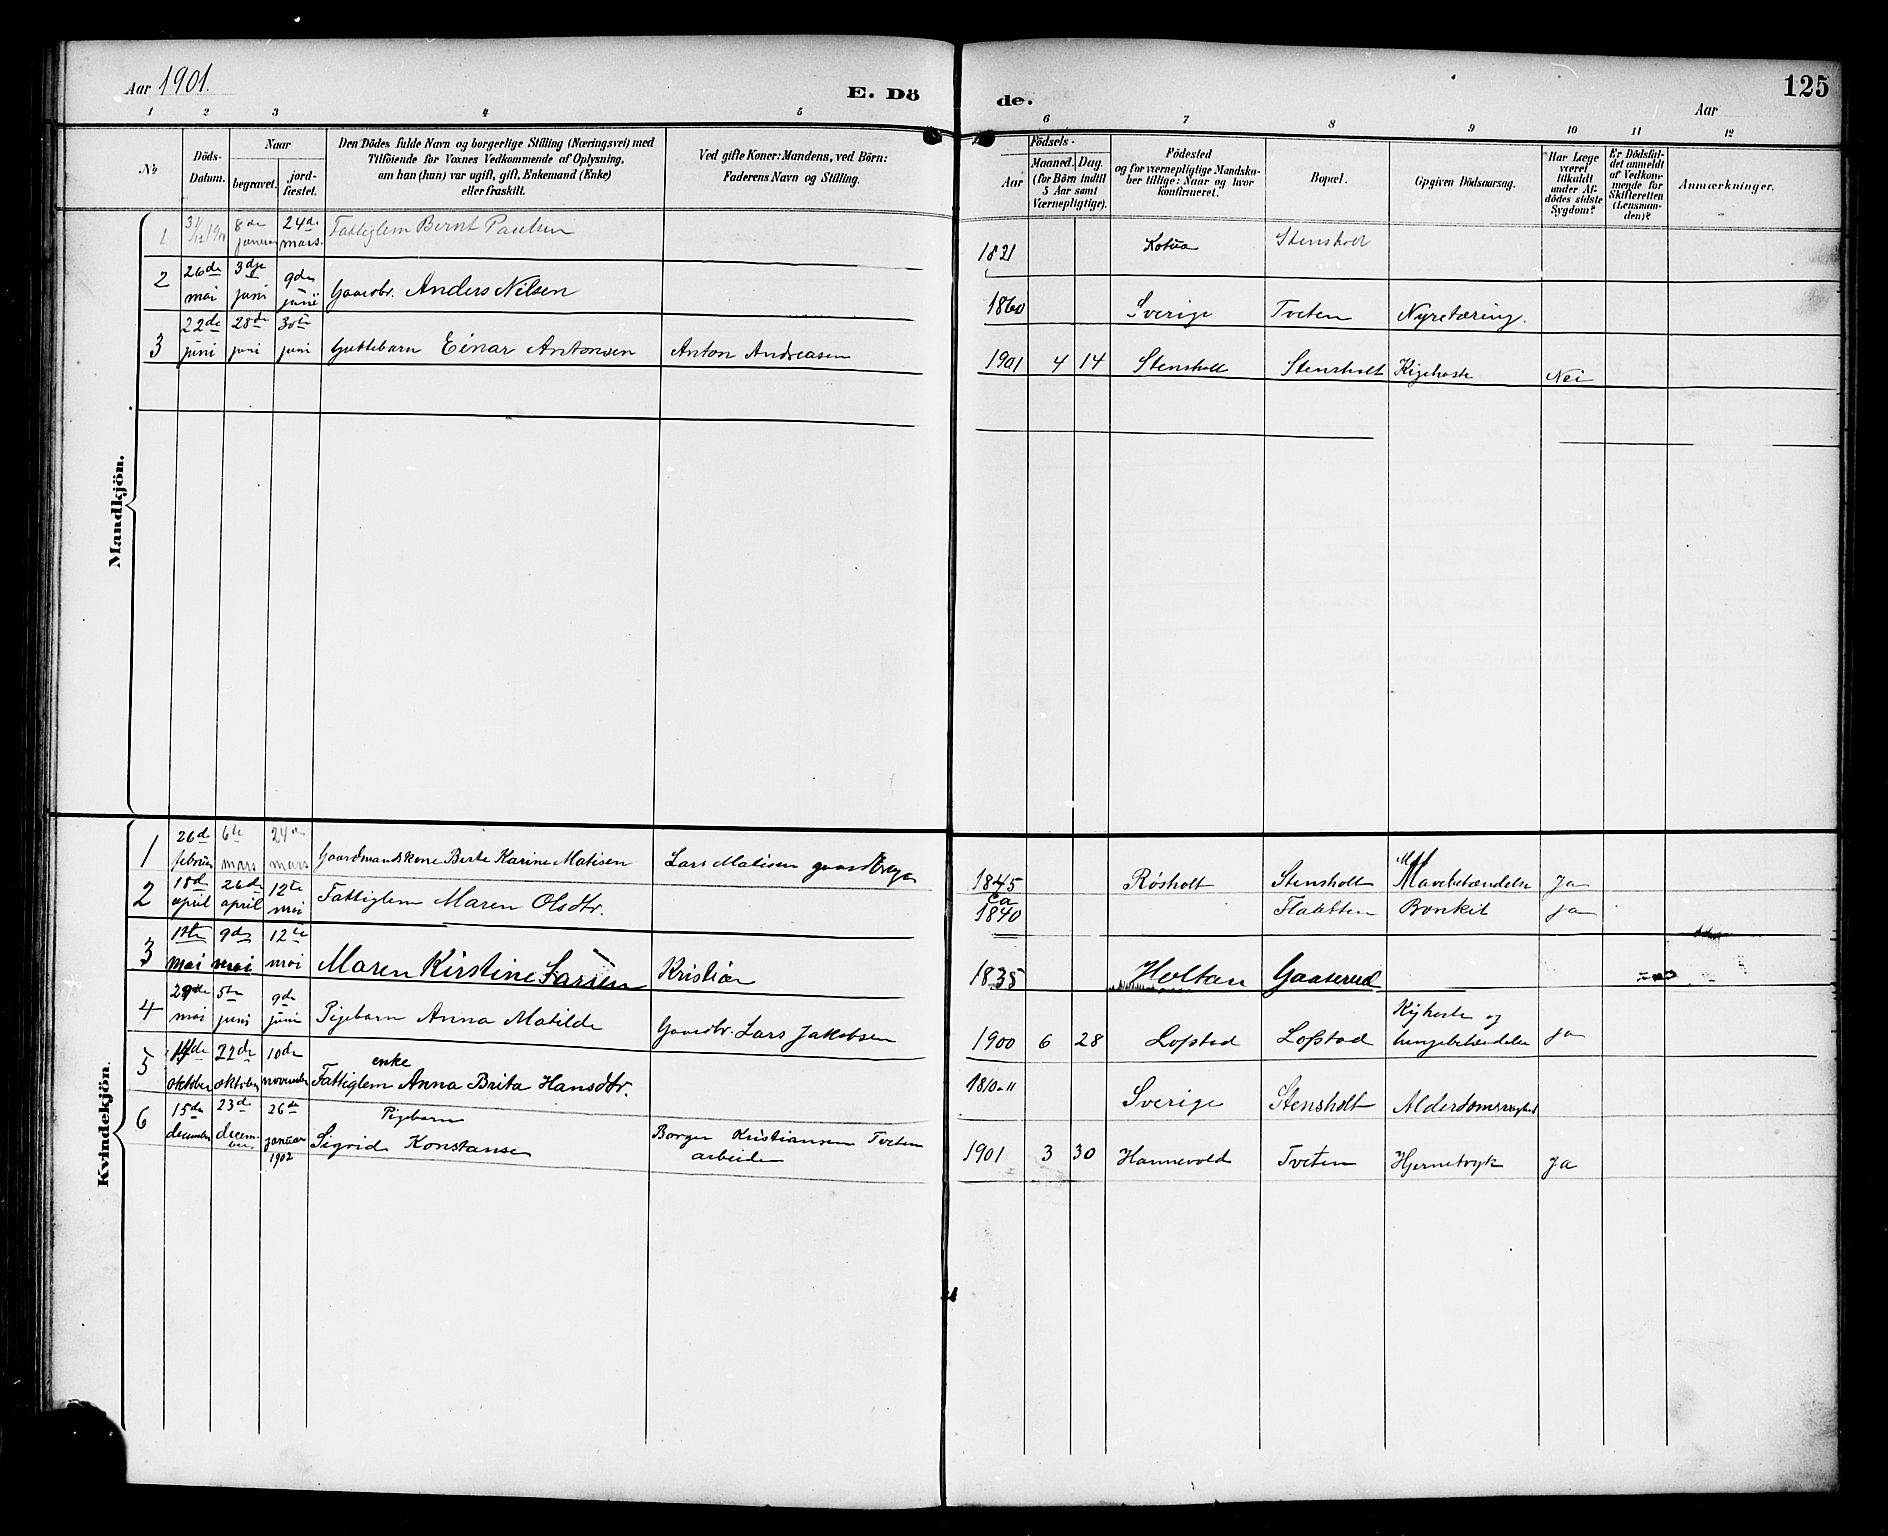 Aar 1901.
E. Dö
de.
Aar
125
1 2 3 4 5 6 7 8 9 10 11 12
No
Döds-
Datum.
Naar
begravet.
jord-
fæstet.
Den Dödes fulde Navn og borgerlige Stilling (Næringsvei) med
Tilföiende for Voxnes Vedkommende af Oplysning,
om han (hun) var ugift, gift, Enkemand (Enke)
eller fraskilt.
Ved gifte Koner: Mandens, ved Börn:
Faderens Navn og Stilling.
Födsels-
Aar
Maaned. Dag.
(for Börn indtil
5 Aar samt
Værnepligtige).
Födested
og for værnepligtige Mandska-
ber tillige: Naar og hvor
konfirmeret.
Bopæl.
Opgiven Dödsaarsag.
Har Læge
været
tilkaldt
under Af-
dödes sidste
Sygdom?
Er Dödsfal-
det anmeldt
af Vedkom-
mende for
Skifteretten
(Lensman-
den)?
Anmærkninger.
Mandkjön.
1 31/12 8de januar 24de mars. Fattiglem Bernt Paulsen 1821 Stensholt
2 26de mai 3dje juni 9de juni Gaardbr. Anders Nilsen 1860 Sverige Tveten Nyretæring.
3 22de juni 28de juni 30te juni Guttebarn Einar Antonsen Anton Andreasen 1901 4 14 Stensholt Stensholt Kighoste Nei
Kvindekjön.
1 26de februar 6te mars 24de mars Gaardmandskone Berte Karine Matisen Lars Matisen 1845 Røsholt Stensholt Mavebetændelse Ja
2 18de april 26de april 12te mai Fattiglem Maren Olsdtr. ca 1840 Flaatten Ja
3 mai 9de mai 12te mai Maren Kirstine Larsen Kristian 1835 Holtan Gaaserud
4 29de mai 5te juni 9de juni Pigebarn Anna Matilde Gaardbr. Lars Jakobsen 1900 6 28 Lofstad Lofstad Kighoste og
lungebetændelse Ja
5 14de oktober 22de oktober 10de november enke
Fattiglem Anna Brita Hansdtr. 1810 a 11 Sverige Stensholt
6 15de december 23de decem-
ber 26de januar
1902 Pigebarn
Sigrid Konstanse Borger Kristiansen Tveten
arbeider 1901 3 30 Hannevold Tveten Hjernetryk Ja